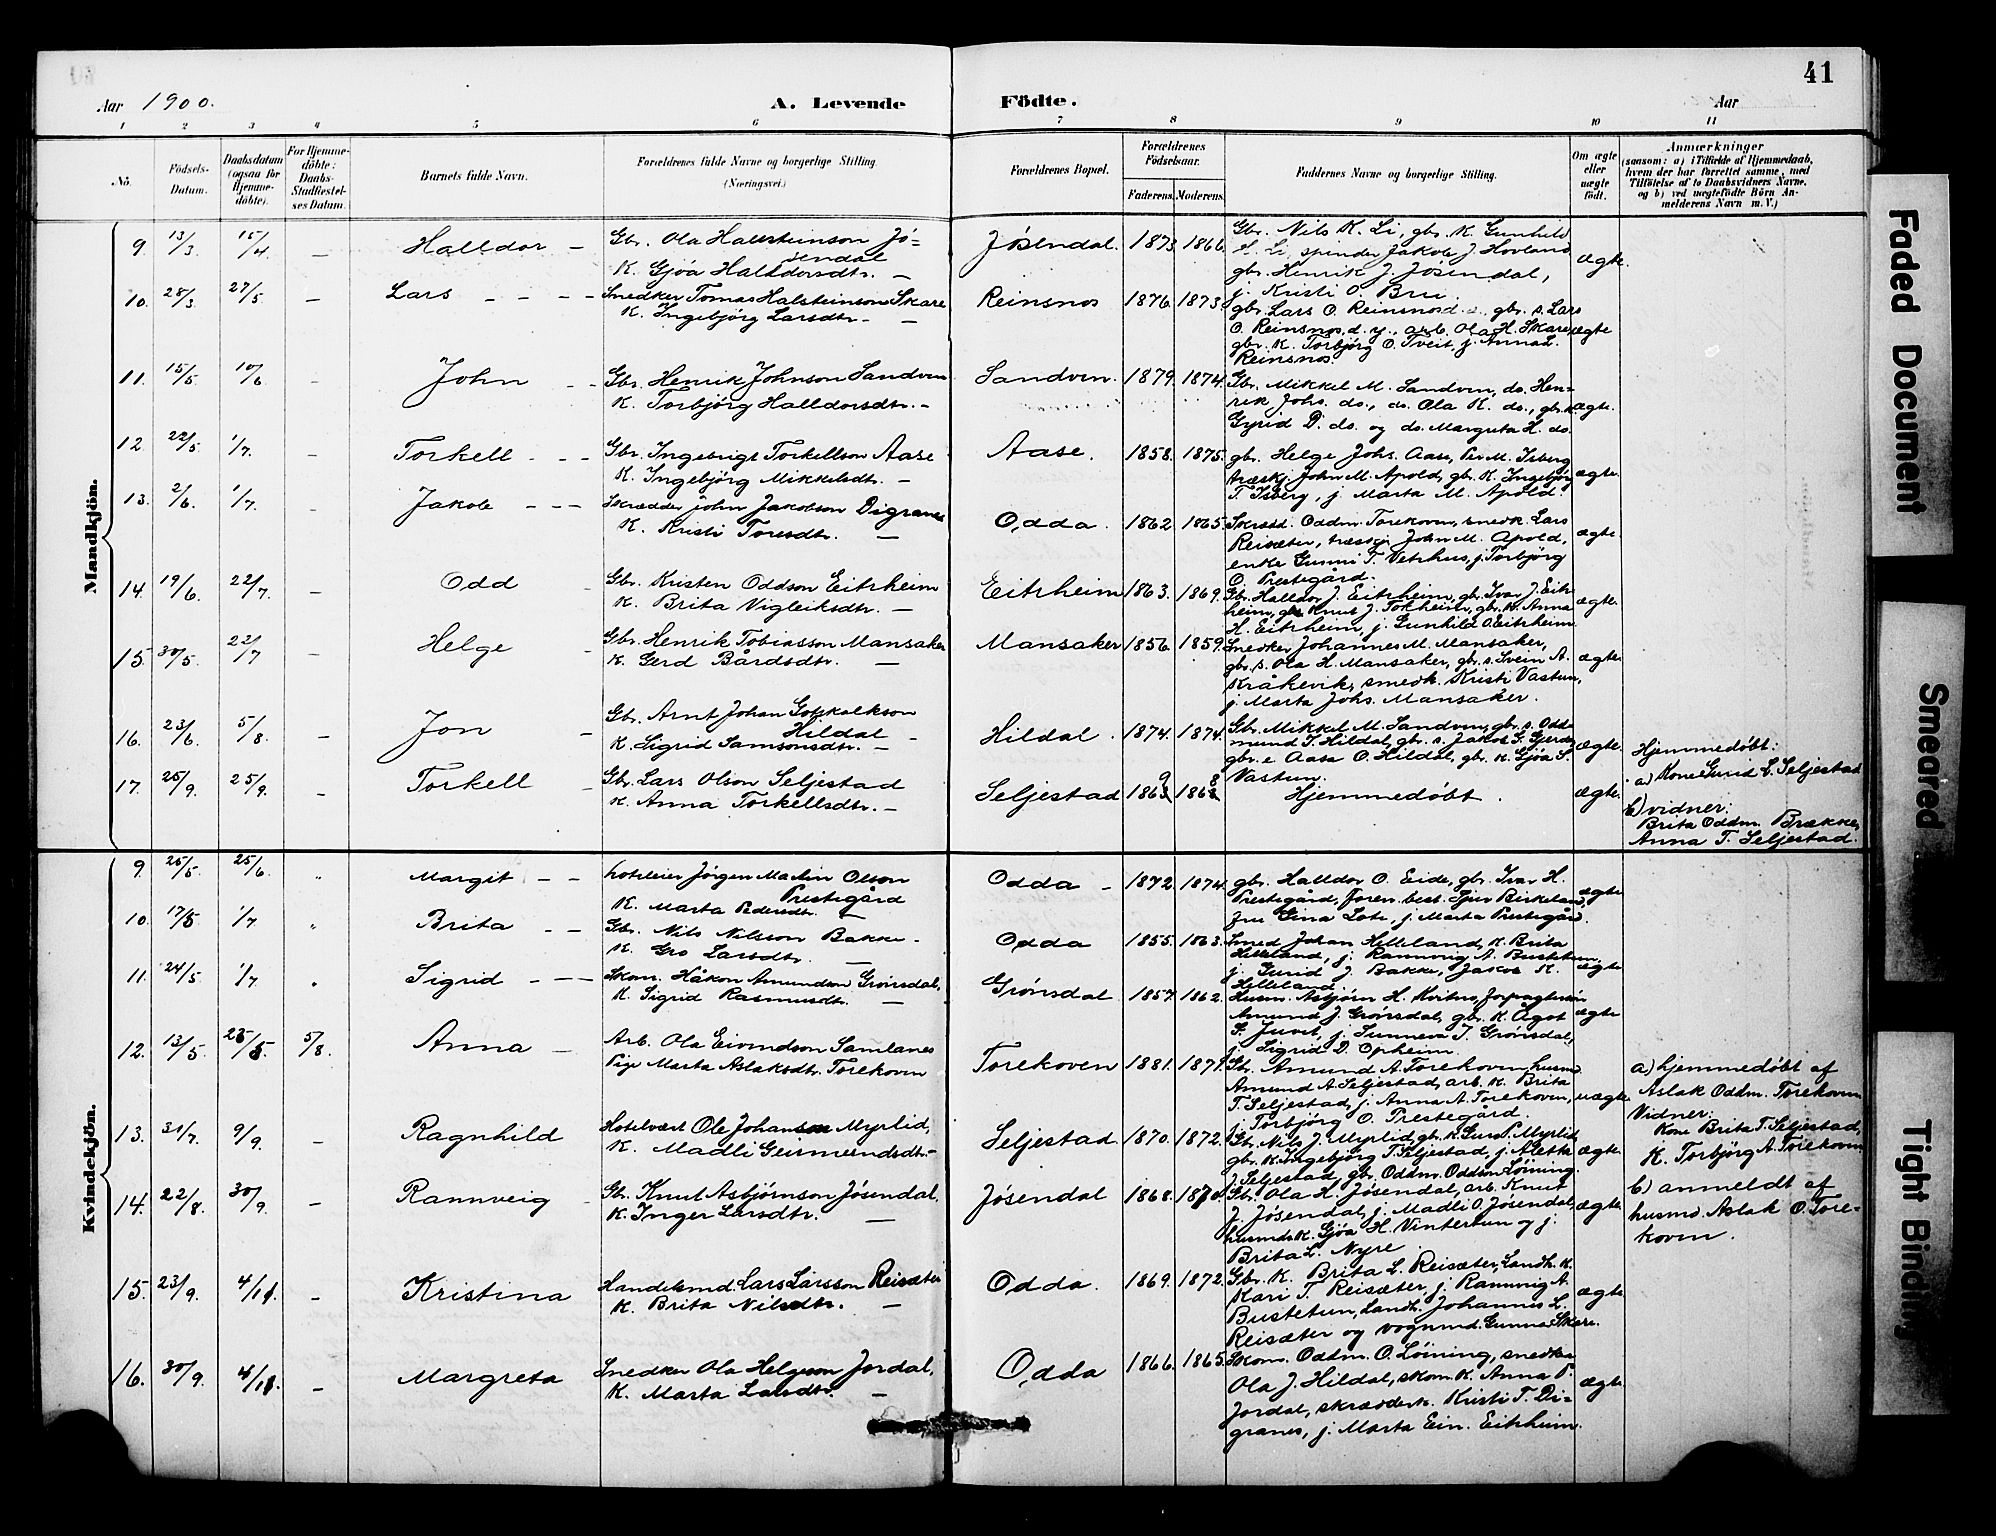 41
Aar 1900.
A. Levende Födte.
Aar
1 2 3 4 5 6 7 8 9 10 11
No.
Födsels-Datum.
Daabsdatum (ogsaa for Hjemmedöbte).
For Hjemmedöbte: Daabs-Stadfæstelses Datum.
Barnets fulde Navn.
Forældrenes fulde Navne og borgerlige Stilling. (Næringsvei.)
Forældrenes Bopæl.
Forældrenes Födselsaar.
Faderens. Moderens.
Faddernes Navne og borgerlige Stilling.
Om ægte eller uægte født.
Anmærkninger
(saasom: a) i Tilfælde af Hjemmedaab, hvem der har forrettet samme, med Tilföielse af to Daabsvidners Navne, og b) ved uægtefödte Börn Anmelderens Navn m. V.)
Mandkjön.
9. 13/3 15/4 – Halldor – Gbr. Ola Hallsteinson Jösendal
K. Gjöa Halldorsdtr. –
Jösendal. 1873 1866.
Gbr. Nils K. Li, gbr. K. Gunhild
S. Li, spinder Jakob J. Hovland
gbr. Henrik J. Jösendal,
j. Kristi O. Bru.
ægte.
10. 28/3 27/5 – Lars – – – Snedker Tomas Halsteinson Skare
K. Ingebjörg Larsdtr. –
Reinsnos 1876. 1873.
gbr. Lars O. Reinsnos d. , gbr. s. Lars
O. Reinsnos, d. y., arb. Ola H. Skare,
gbr. K. Torbjörg O. Tveit, j. Anna L.
Reinsnos.
ægte
11. 15/5 10/6 – John – – Gbr. Henrik Johnson Sandven
K. Torbjörg Halldorsdtr. –
Sandven. 1879. 1874.
Gbr. Mikkel M. Sandven, do. Henrik
Johs. do., do. Ola K. do., gbr. k.
Gyrid D. do. og do. Margreta H. do.
ægte.
12. 22/5 1/7. – Torkell – – Gbr. Ingebrigt Torkellson Aase
K. Ingebjörg Mikkelsdtr. –
Aase. 1858. 1875.
gbr. Helge Johs. Aase, Per M. Isberg
træskj. John M. Apold, gbr. K. Ingebjörg
T. Isberg, j. Marta M. Apold.
ægte.
13. 2/6. 1/7 – Jakob – – – Skrædder John Jakobson Digranes
K. Kristi Toresdtr. –
Odda. 1862 1865.
Skrædd. Oddm. Torekoven, snedk. Lars
Reisæter, træskj. John M. Apold,
enke Gunni T. Vetrhus, j. Torbjörg
O. Prestegård.
ægte.
14. 19/6. 22/7. – Odd – Gbr. Kristen Oddson Eitrheim
K. Brita Vigleiksdtr. –
Eitrheim 1863. 1869.
Gbr. Halldor J. Eitrheim, gbr. Ivar J. Eitrheim,
gbr. Knut J. Tokheim, gbr. K. Anna
H. Eitrheim, j. Gunhild O. Eitrheim.
ægte.
15. 30/5. 22/7 – Helge – Gbr. Henrik Tobiasson Mansaker
K. Gerd Bårdsdtr. –
Mansaker 1856. 1859.
Snedker Johannes M. Mansaker,
gbr. s. Ola H. Mansaker, gbr. s. Svein A.
Kråkevik, smedk. Kristi Vastun,
j. Marta Johs. Mansaker.
ægte.
16. 23/6 5/8. – Jon – Gbr. Arnt Johan Gotskalkson
Hildal
K. Sigrid Samsonsdtr. –
Hildal. 1874. 1874.
Gbr. Mikkel M. Sandven, gbr. s. Oddmund
T. Hildal, gbr. s. Jakob G. Gjerde,
gbr. e. Aasa O. Hildal, gbr. K. Gjöa S.
Vastun.
ægte.
17. 25/9. 25/9. – Torkell – Gbr. Lars Olson Seljestad
K. Anna Torkellsdtr. –
Seljestad 1869 1868
Hjemmedøbt.
ægte.
Hjemmedøbt:
a) Kone Gurid L. Seljestad
b) vidner:
Brita Oddm. Brække,
Anna T. Seljestad.
Kvindekjön.
9. 25/5. 25/6. " Margit – – hoteleier Jörgen Martin Olson
Prestegård
K. Marta Pedersdtr. –
Odda – 1872. 1874.
gbr. Halldor O. Eide, gbr. Ivar H.
Prestegård, Foren. best. Sjur Birkeland,
fru Gina Lote, j. Marta Prestegård.
ægte
10. 17/5 1/7 " Brita – – Gbr. Nils Nilsson Bakke.
K. Gro Larsdtr. –
Odda 1855. 1863.
Smed Johan Helleland, K. Brita
Helleland, j. Rannveig A. Bustetun,
j. Gurid J. Bakke, Jakob K.
Helleland.
ægte
11. 24/5 1/7 " Sigrid – – – Skom. Håkon Amundson Grönsdal,
K. Sigrid Rasmusdtr. –
Grönsdal 1857. 1862.
Husm. Asbjörn H. Kvitno, forpagterson
Amund J. Grönsdal, gbr. K. Ågot
S. Juvet, j. Sunneva T. Grönsdal,
j. Sigrid D. Opheim.
ægte
12. 13/5. 25/5. 5/8. Anna – Arb. Ola Eivendson Samlanes
Pige Marta Aslaksdtr. Torekoven
Torekoven 1881. 1879.
Gbr. Amund A. Torekoven, husmd.
Amund A. Seljestad, arb. K. Brita
T. Seljestad, j. Anna A. Torekoven,
j. Torbjörg O. Prestegård.
uægte.
a) hjemmedøbt af
Aslak Oddm. Torekoven
Vidner:
Kone Brita T. Seljestad,
K. Torbjörg A. Torekoven
b) anmeldt af
husmd. Aslak O. Torekoven.
13. 31/7. 9/9. – Ragnhild Hotelvært Ole Johanson Myrlid,
K. Madli Geirmundsdtr. –
Seljestad 1870. 1872.
Gbr. Nils J. Myrlid, gbr. K. Guro P. Myrlid,
gbr. K. Ingebjörg T. Seljestad, j. Alette
J. Seljestad, gbr. Oddm. Oddson Löining.
ægte.
14. 22/8. 30/9. – Rannveig – Gbr. Knut Asbjörnson Jösendal,
K. Inger Larsdtr. –
Jösendal 1868. 1870.
Gbr. Ola H. Jösendal, arb. Knut
J. Jösendal, j. Madli O. Jösendal,
husmds. K. Gjöa H. Vintertun og j.
Brita L. Nyre
ægte.
15. 23/9. 4/11. – Kristina Handelsmd. Lars Larsson Reisæter
K. Brita Nilsdtr. –
Odda. 1869. 1872.
Gbr. K. Brita L. Reisæter, Landh. K.
Kari T. Reisæter, j. Rannveig A.
Bustetun, Landh. Johannes L.
Reisæter og vognmd. Gunnar Skare.
ægte.
16. 30/9. 4/11. – Margreta Snedker Ola Helgeson Jordal,
K. Marta Larsdtr. –
Odda 1866. 1865.
Skom. Oddm. O. Löining, snedker
Ola J. Hildal, skom. K. Anna P.
Jordal, skrædderk. Kristi T. Digranes,
j. Marta Ein. Eitrheim.
ægte.
Faded Document
Smeared
Tight Binding